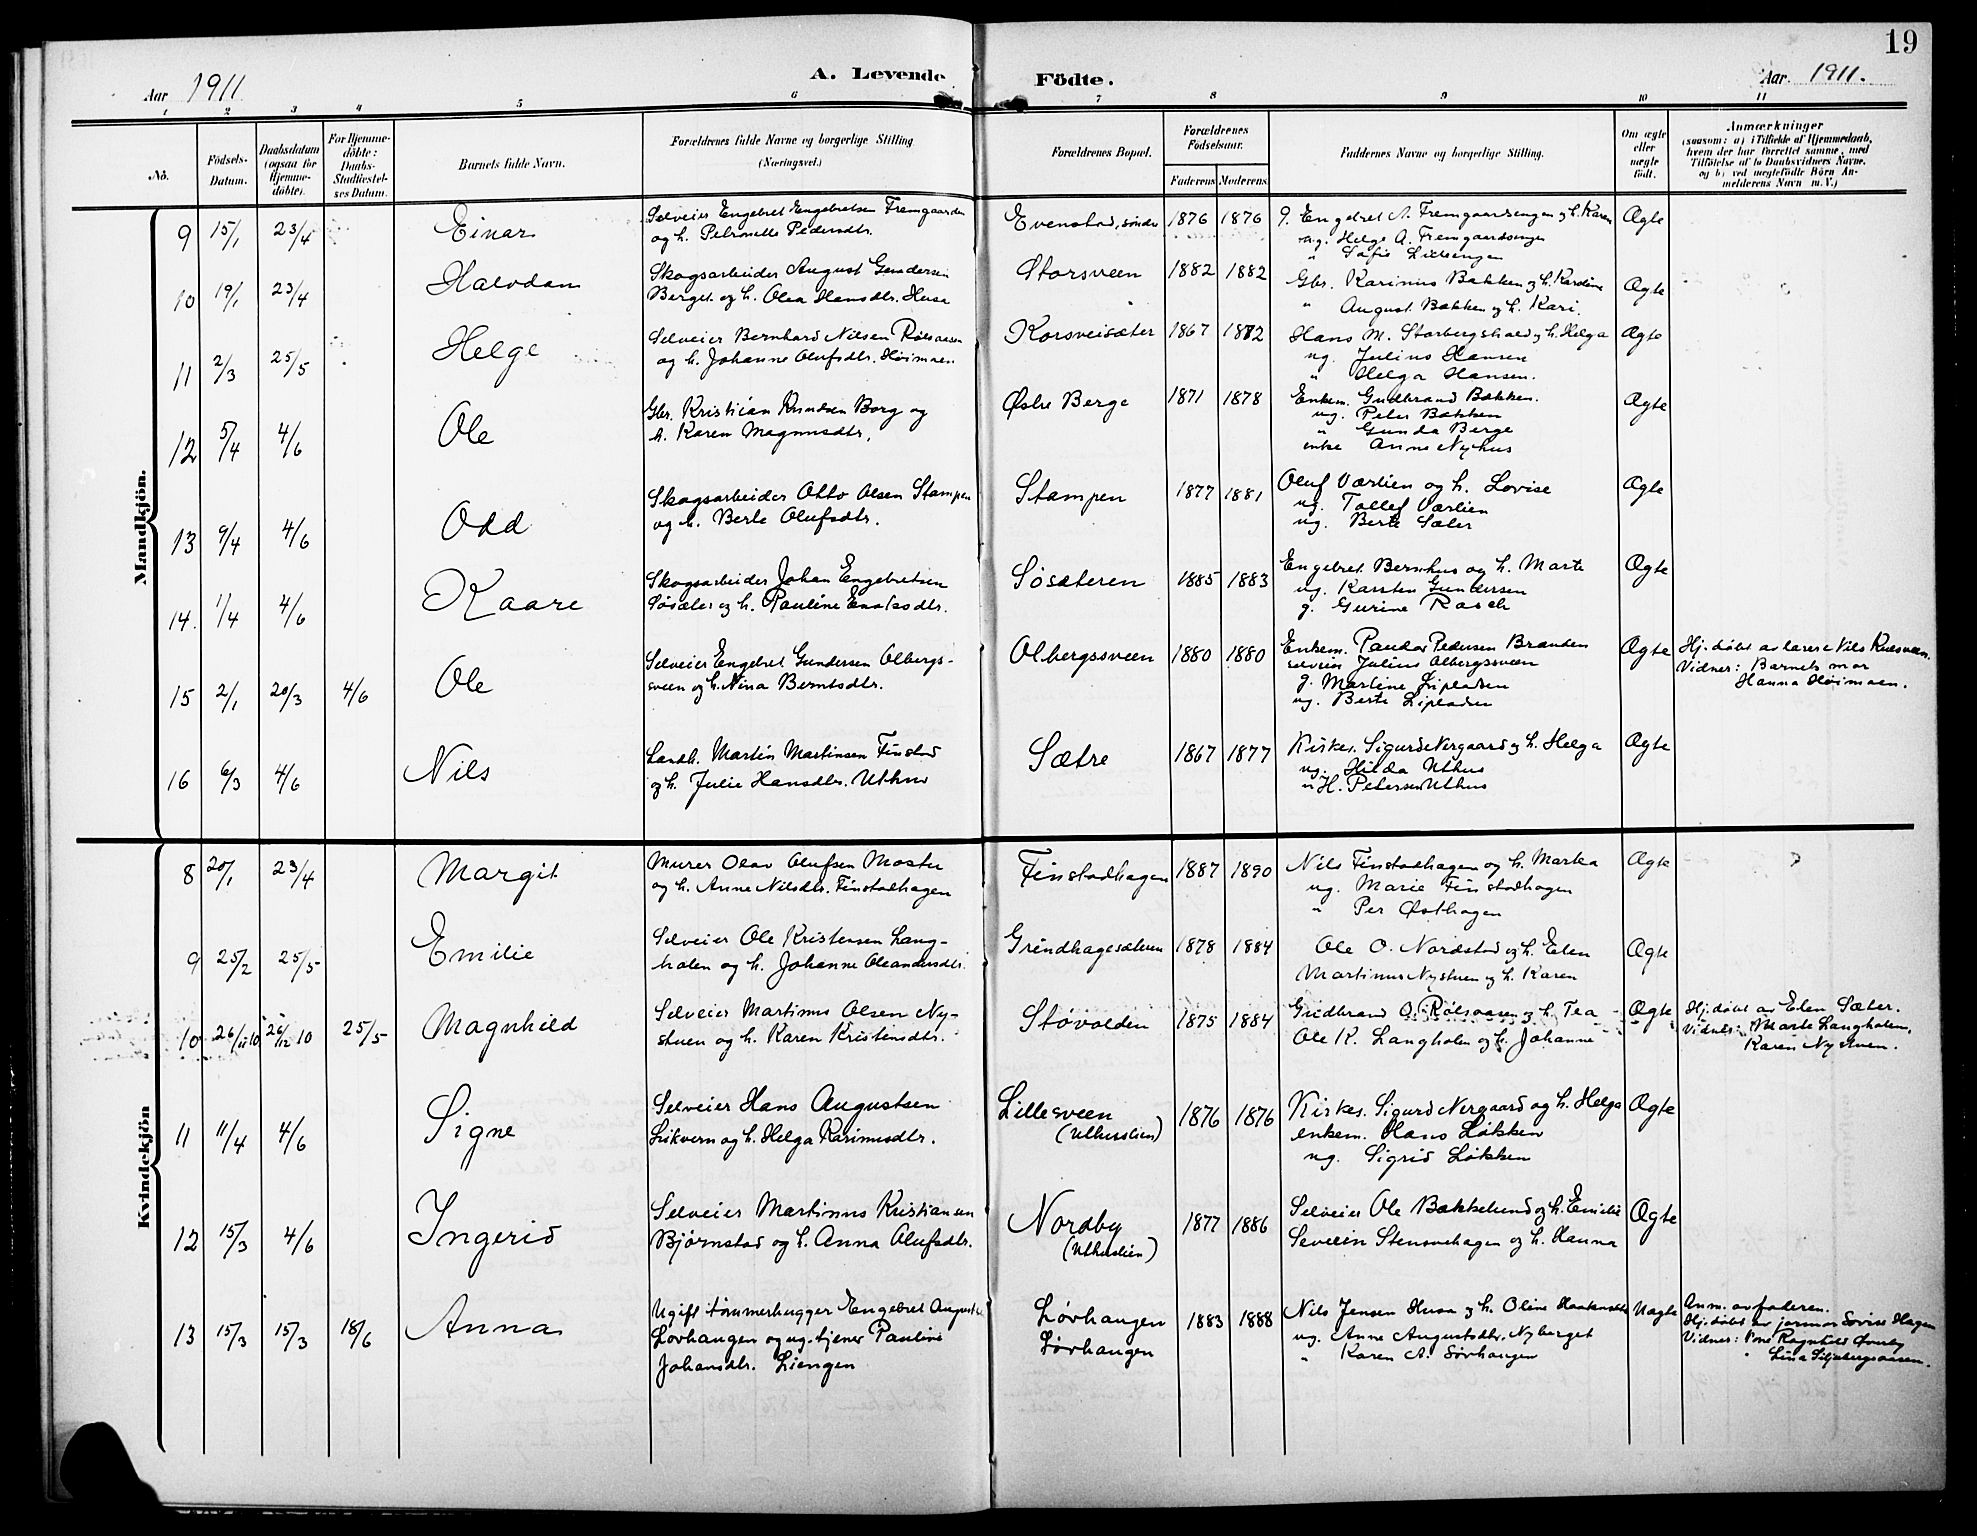 19
Aar 1911
A. Levende
Födte.
Aar. 1911.
1 2 3 4 5 6 7 8 9 10 11
No.
Födsels-
Datum.
Daabsdatum
(ogsaa for
Hjemme-
döbte).
For Hjemme-
döbte:
Daabs-
Stadfæstel-
ses Datum.
Barnets fulde Navn.
Forældrenes fulde Navne og borgerlige Stilling
(Næringsvei.)
Forældrenes Bopæl.
Forældrenes
Födselsaar.
Faderens
Moderens
Faddernes Navne og borgerlige Stilling.
Om ægte
eller
uægte
födt.
Anmærkninger
(saasom: a) i Tilfælde af Hjemmedaab,
hvem der har forrettet samme, med
Tilföielse af to Daabsvidners Navne,
og b) ved uægtefödte Börn An-
melderens Navn m. V.)
Mandkjön.
9 15/1 23/4 Einar
Selveier Engebret Engebretsen Fremgaarden
og h. Petronelle Pedersdtr.
Evenstad, søndre 1876 1876
g. Engebret A. Fremgaardsengen og h. Karen
ug. Helge A. Fremgaardsengen
" Sofie Lilleengen
Ægte
10 19/1 23/4 Halvdan
Skogsarbeider August Gundersen
Berget og h. Olea Hansdtr. Husa
Storsveen 1882 1882
Gbr. Karinus Bakken og h. Kardine
" August Bakken og h. Kari.
Ægte
11 2/3 25/5 Helge
Selveier Bernhard Nilsen Rølsaasen
og h. Johanne Olufsdtr. Høimoen
Korsveisæter 1867 1872
Hans M. Storbergshald og h. Helga
ug. Julius Hansen
" Helga Hansen.
Ægte
12 5/4 4/6 Ole
Gbr. Kristian Knudsen Borg og
h. Karen Magnusdtr.
Østre Berge 1871 1878
Enkem. Gudbrand Bakken.
ug. Peter Bakken
" Gunda Berge
enke Anne Nyhus
Ægte
13 9/4 4/6 Odd
Skogsarbeider Otto Olsen Stampen
og h. Berte Olufsdtr.
Stampen 1877 1881
Oluf Værlien og h. Lovise
ug. Tollef Værlien
ug. Berte Sæter
Ægte
14. 1/4 4/6 Kaare
Skogsarbeider Johan Engebretsen
Søsæter og h. Pauline Enoksdtr.
Søsæteren 1885 1883
Engebret Bernhus og h. Marte
ug. Karsten Gundersen
g. Gurine Rasch
Ægte
15 2/1 20/3 4/6 Ole
Selveier Engebret Gundersen Olbergs-
sveen og h. Nina Berntsdtr.
Olbergssveen 1880 1880
Enkem. Peder Pedersen Brænden
selveier Julius Olbergssveen
g. Martine Lipladsen
ug. Berte Lipladsen
Ægte
Hj. døbt av lærer Nils
Vidner: Barnets mor
Hanna Høimoen.
16 6/3 4/6 Nils
Landh. Martin Martinsen Finstad
og h. Julie Hansdtr. Uthus
Sætre 1867 1877
Kirkes. Sigurd Nergaard og h. Helga
ug. Hilda Uthus
" H. Petersen Uthus
Ægte
Kvindekjön
8 20/1 23/4 Margit
Murer Olav Olufsen Mostu
og h. Anne Nilsdtr. Finstadhagen
Finstadhagen 1887 1890
Nils Finstadhagen og h. Marka
ug. Marie Finstadhagen
" Per Østhagen
Ægte
9 25/2 25/5 Emilie
Selveier Ole Kristensen Lang-
holen og h. Johanne Oleandersdtr.
Grindhagesæteren 1878 1884
Ole O. Nordstad og h. Elen
Martinus Nystuen og h. Karen
Ægte
10 26/11 10 26/12 10 25/5 Magnhild
Selveier Martinus Olsen Ny-
stuen og h. Karen Kristensdtr.
Støvolden 1875 1884
Gudbrand O. Rølsaasen og h. Tea
Ole K. Langholen og h. Johanne
Ægte
Hj. døbt av Elen Sæter.
Vidner: Marte Langholen,
Karen Nystuen.
11 11/4 4/6 Signe
Selveier Hans Augustsen
Lukvern og h. Helga Karinusdtr.
Lillesveen
(Uthuslien)
1876 1876
Kirkes. Sigurd Nergaard og h. Helga
enkem. Hans Løkken
ug. Sigrid Løkken
Ægte
12 15/3 4/6 Ingerid
Selveier Martinus Kristiansen
Bjørnstad og h. Anna Olufsdtr.
Nordby
(Uthuslien)
1877 1886
Selveier Ole Bakkelund og h. Emilie
Severin Stensvehagen og h. Hanna
Ægte
13 15/3 15/3 18/6 Anna
Ugift tømmerhugger Engebret Augusts.
Løvhaugen og ug. tjener Pauline
Johansdtr. Liengen
Løvhaugen
Løvhaugen
1883 1888
Nils Jensen Husa og h. Oline Haakensdtr.
ug. Anne Augustsdtr. Nyberget
" Karen A. Løvhaugen
Uægte
Anm. av faderen.
Hj. døbt av jormor Lovise Hagen
Vidner: Ragnhild
" Lina Siljebergsaasen.